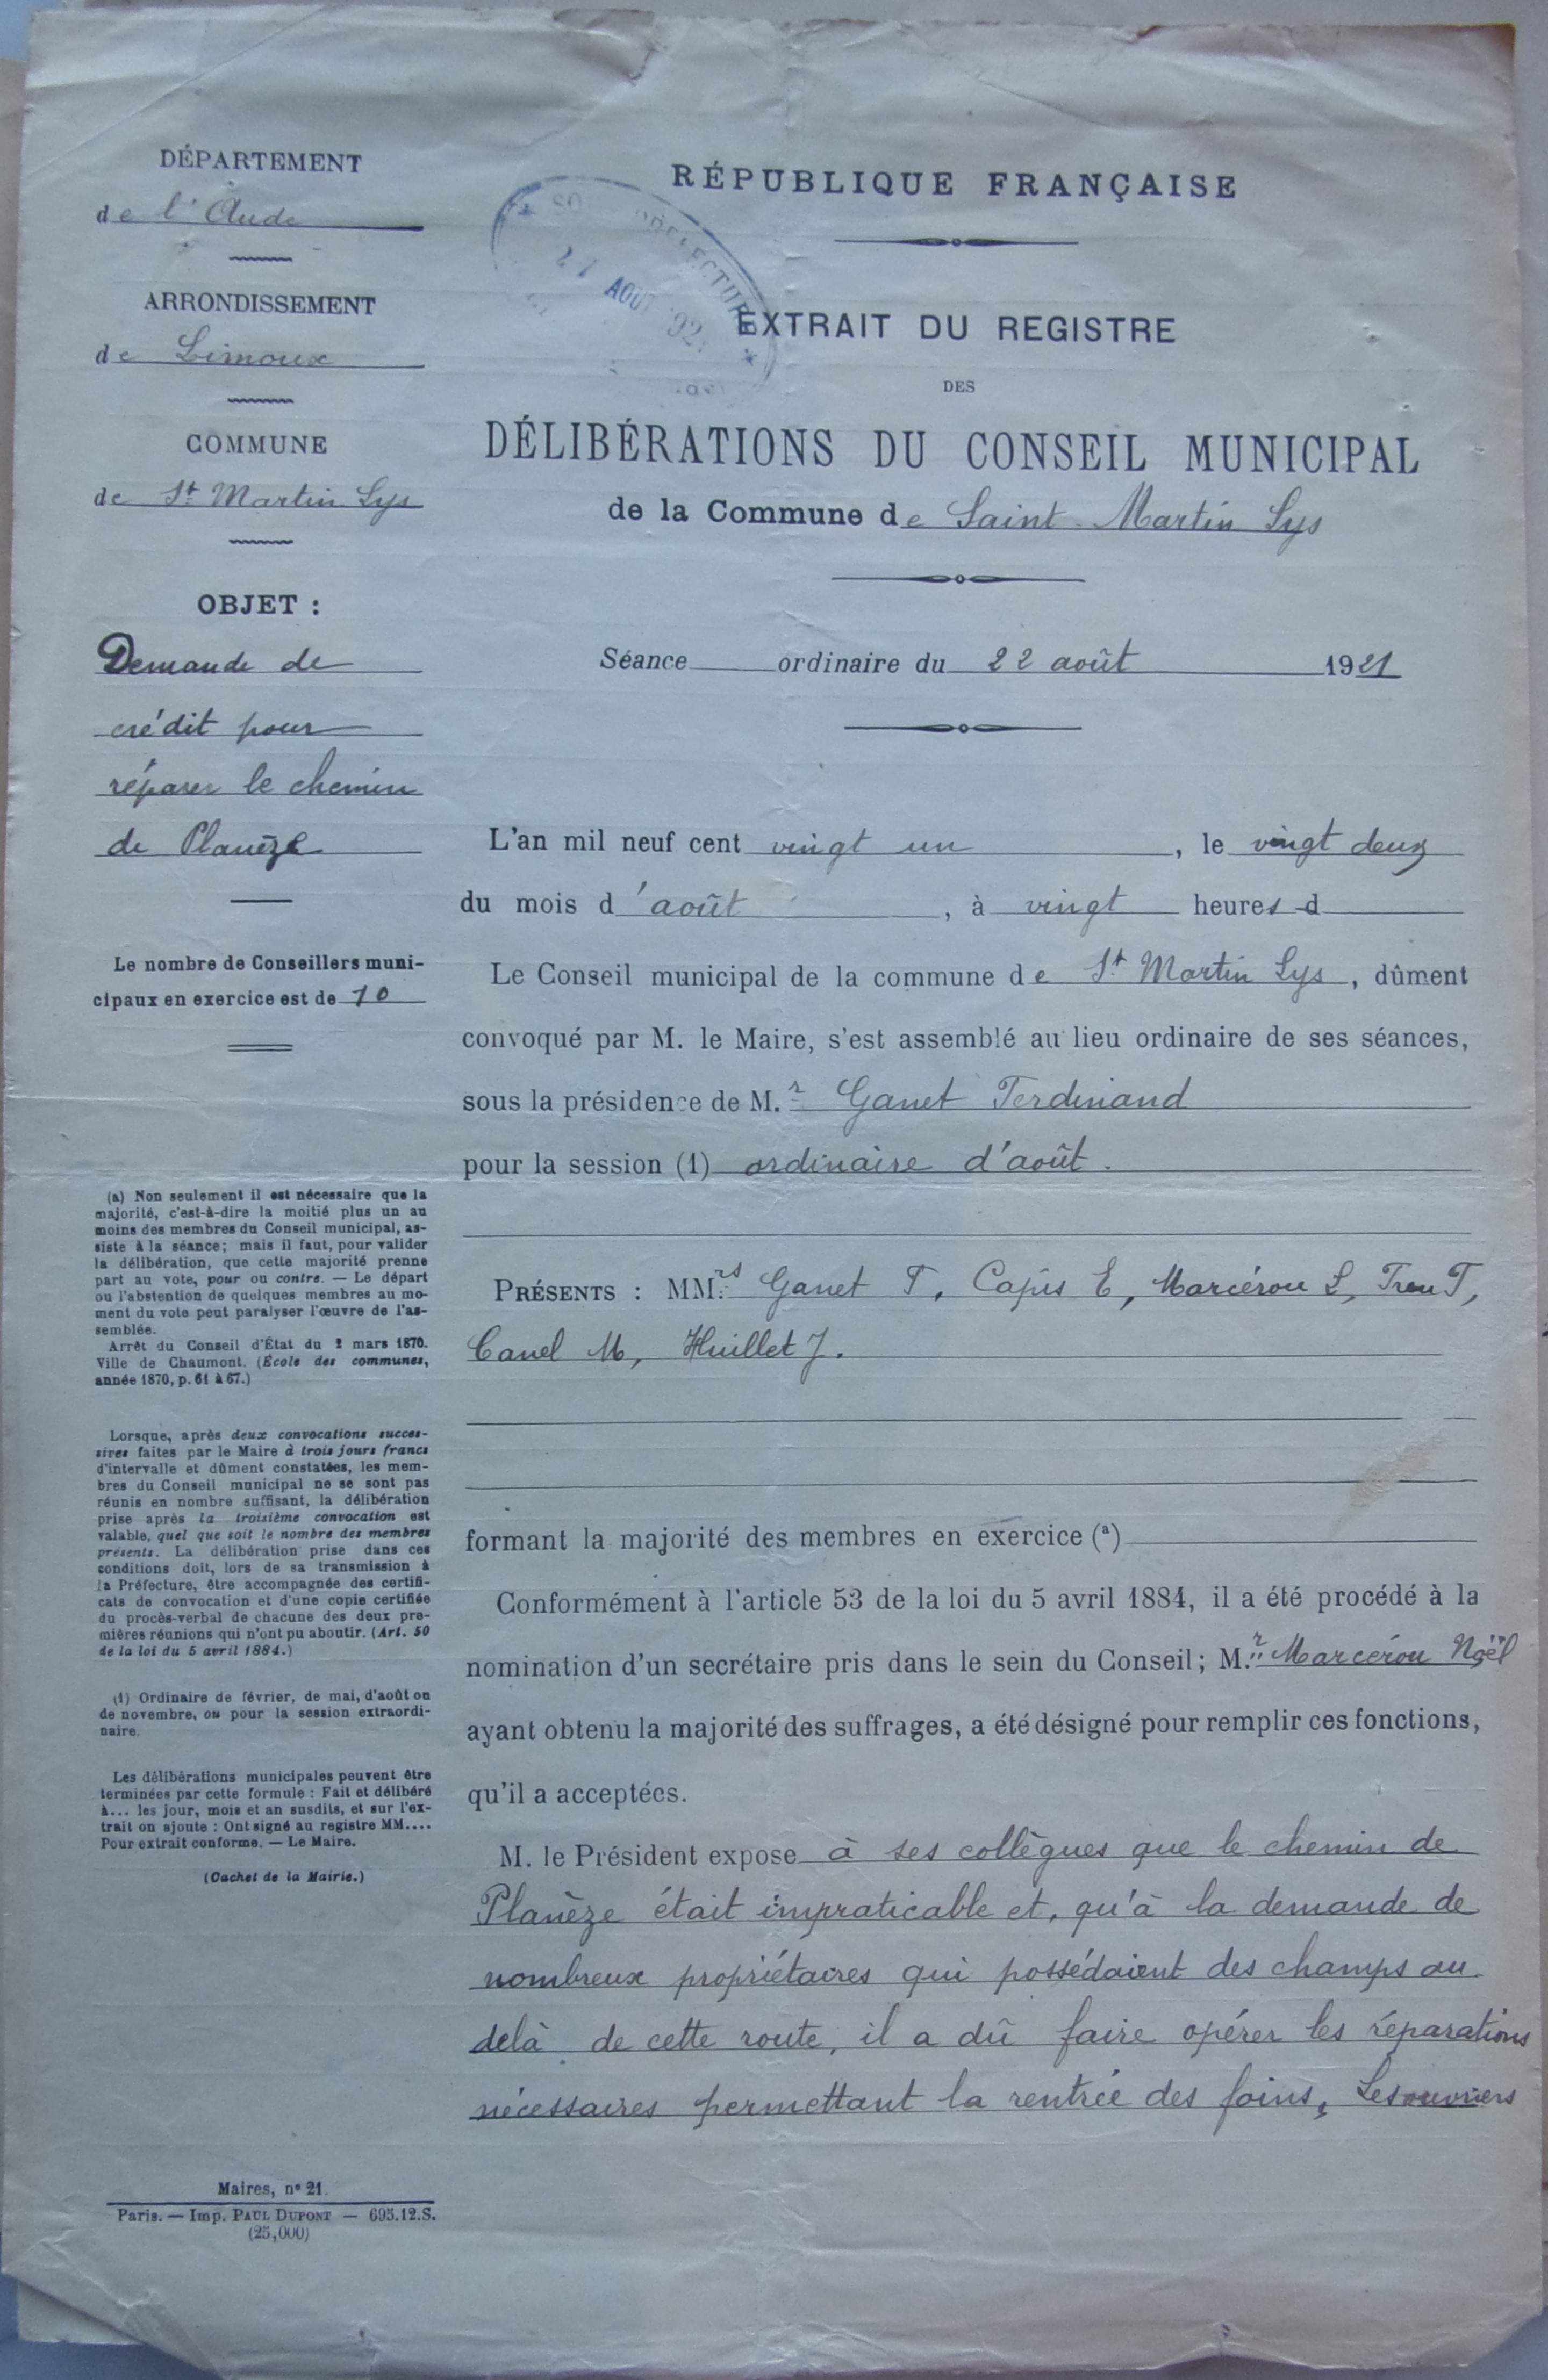 DÉPARTEMENT
de l'Aude
ARRONDISSEMENT
de Limoux
COMMUNE
de St Martin Lys
OBJET :
Demande de
crédit pour
réparer le chemin
de Planèze
Le nombre de Conseillers muni-
cipaux en exercice est de 10
(a) Non seulement il est nécessaire que la
majorité, c'est-à-dire la moitié plus un au
moins des membres du Conseil municipal, as-
siste à la séance; mais il faut, pour valider
la délibération, que cette majorité prenne
part au vote, pour ou contre. — Le départ
ou l'abstention de quelques membres au mo-
ment du vote peut paralyser l'œuvre de l'as-
semblée.
Arrêt du Conseil d'État du 2 mars 1870.
Ville de Chaumont. (École des communes,
année 1870, p. 61 à 67.)
Lorsque, après deux convocations succes-
sives faites par le Maire à trois jours francs
d'intervalle et dûment constatées, les mem-
bres du Conseil municipal ne se sont pas
réunis en nombre suffisant, la délibération
prise après la troisième convocation est
valable, quel que soit le nombre des membres
présents. La délibération prise dans ces
conditions doit, lors de sa transmission à
la Préfecture, être accompagnée des certifi-
cats de convocation et d'une copie certifiée
du procès-verbal de chacune des deux pre-
mières réunions qui n'ont pu aboutir. (Art. 50
de la loi du 5 avril 1884.)
(1) Ordinaire de février, de mai, d'août ou
de novembre, ou pour la session extraordi-
naire.
Les délibérations municipales peuvent être
terminées par cette formule : Fait et délibéré
à... les jour, mois et an susdits, et sur l'ex-
trait on ajoute : Ont signé au registre MM....
Pour extrait conforme. — Le Maire.
(Cachet de la Mairie.)
Maires, n° 21.
Paris. — Imp. PAUL DUPONT — 695.12.S.
(25,000)
RÉPUBLIQUE FRANÇAISE
27 AOUT 192
EXTRAIT DU REGISTRE
DES
DÉLIBÉRATIONS DU CONSEIL MUNICIPAL
de la Commune de Saint Martin Lys
Séance ordinaire du 22 août 1921
L'an mil neuf cent vingt un, le vingt deux
du mois d'août, à vingt heures d
Le Conseil municipal de la commune de St Martin Lys, dûment
convoqué par M. le Maire, s'est assemblé au lieu ordinaire de ses séances,
sous la présidence de M.r Ganet Ferdinand
pour la session (1) ordinaire d'août.
PRÉSENTS : MM.rs Ganet F, Capis E, Marcérou L, Treu F,
Canel M, Huillet J.
formant la majorité des membres en exercice (a)
Conformément à l'article 53 de la loi du 5 avril 1884, il a été procédé à la
nomination d'un secrétaire pris dans le sein du Conseil; M.r Marcérou Noël
ayant obtenu la majorité des suffrages, a été désigné pour remplir ces fonctions,
qu'il a acceptées.
M. le Président expose à ses collègues que le chemin de
Planèze était impraticable et, qu'à la demande de
nombreux propriétaires qui possédaient des champs au
delà de cette route, il a dû faire opérer les réparations
nécessaires permettant la rentrée des foins, Les ouvriers